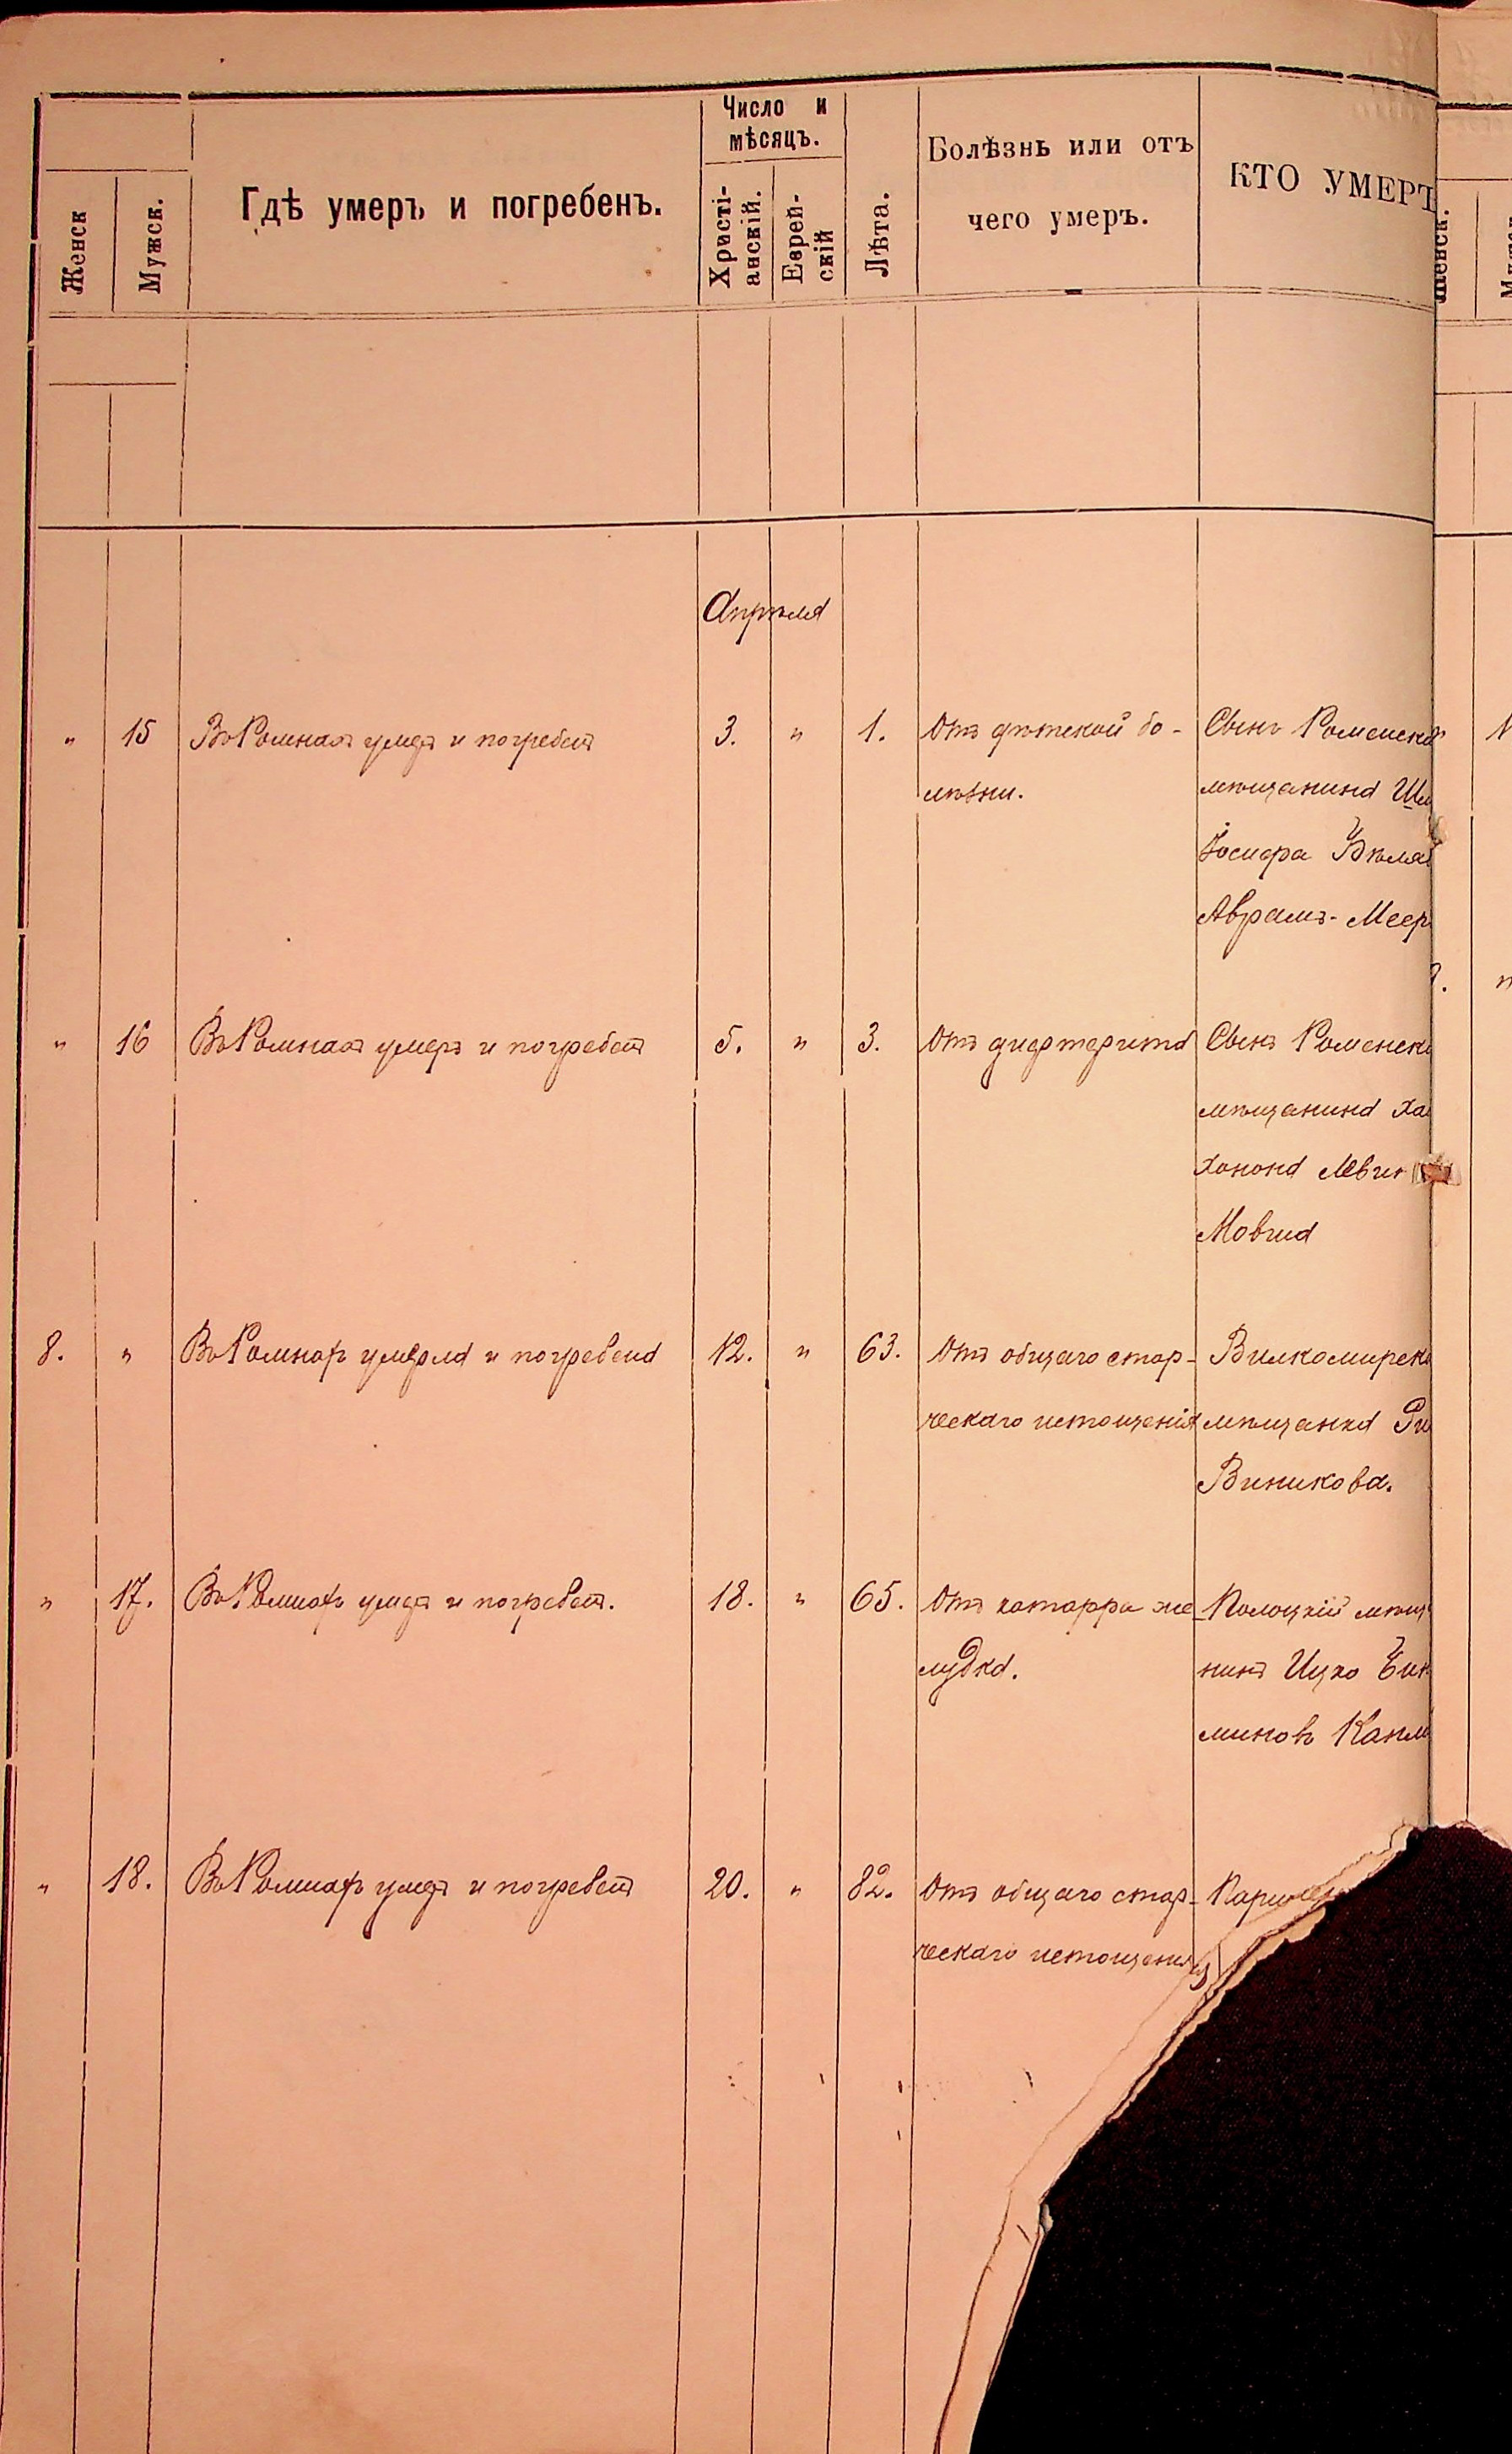 Число и
мѣсяцъ.
Женск
Мужск.
Гдѣ умеръ и погребенъ.
Христі-
анскій.
Еврей-
скій
Лѣта.
Болѣзнь или отъ
чего умеръ.
КТО УМЕРЪ
Апрѣля
" 15 Въ Ромнахъ умеръ и погребенъ 3. " 1. Отъ дѣтской бо- Сынъ Роменска
лѣзни. мѣщанина
Іосифа
Аврамъ-Меер
" 16 Въ Ромнахъ умеръ и погребенъ 5. " 3. Отъ дифтерита Сынъ Роменск
мѣщанина Ха
Ханона Левин
Мовша
8. " Въ Ромнахъ умерла и погребена 12. " 63. Отъ общаго стар- Вилкомирск
ческаго истощенія мѣщанка
Виникова.
" 17. Въ Ромнахъ умеръ и погребенъ. 18. " 65. Отъ катарра же- Полоцкій мѣщ
лудка. нинъ Ицко
миновъ Капл
" 18. Въ Ромнахъ умеръ и погребенъ 20. " 82. Отъ общаго стар-
ческаго истощенія